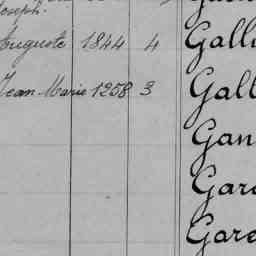 Joseph.
Auguste 1844 4 Galli
Jean Marie 1258 3 Gall
Gan
Gar
Gare